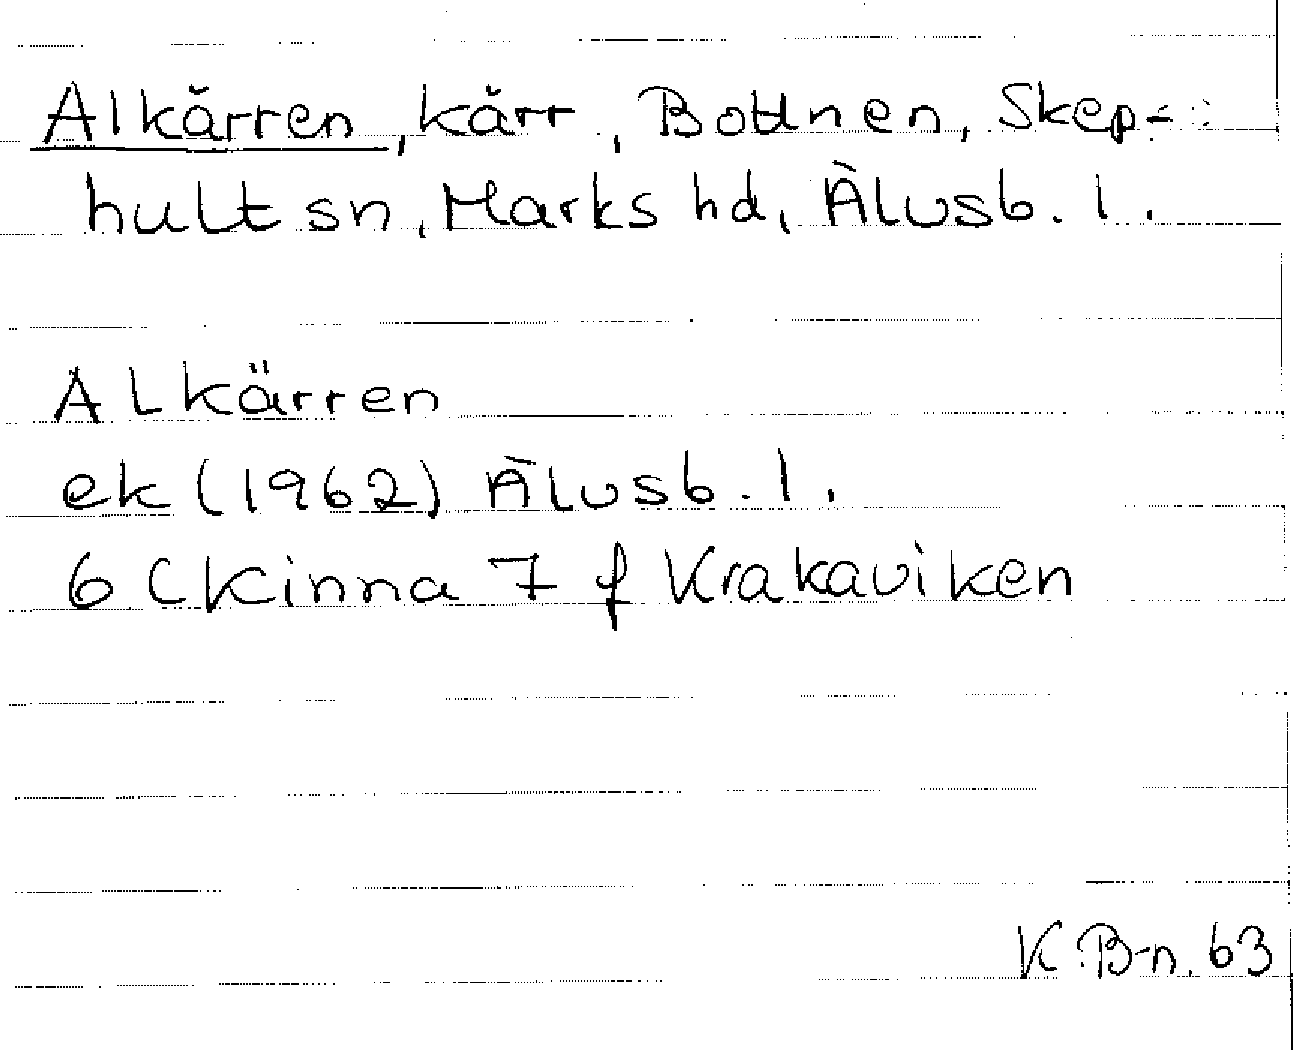 Alkärren, kärr, Bottnen, Skep-
hult sn, Marks hd, Älvsb. l.
Alkärren
ek (1962) Älvsb. l.
6 C Kinna 7 f Krakaviken
K B-n. 63